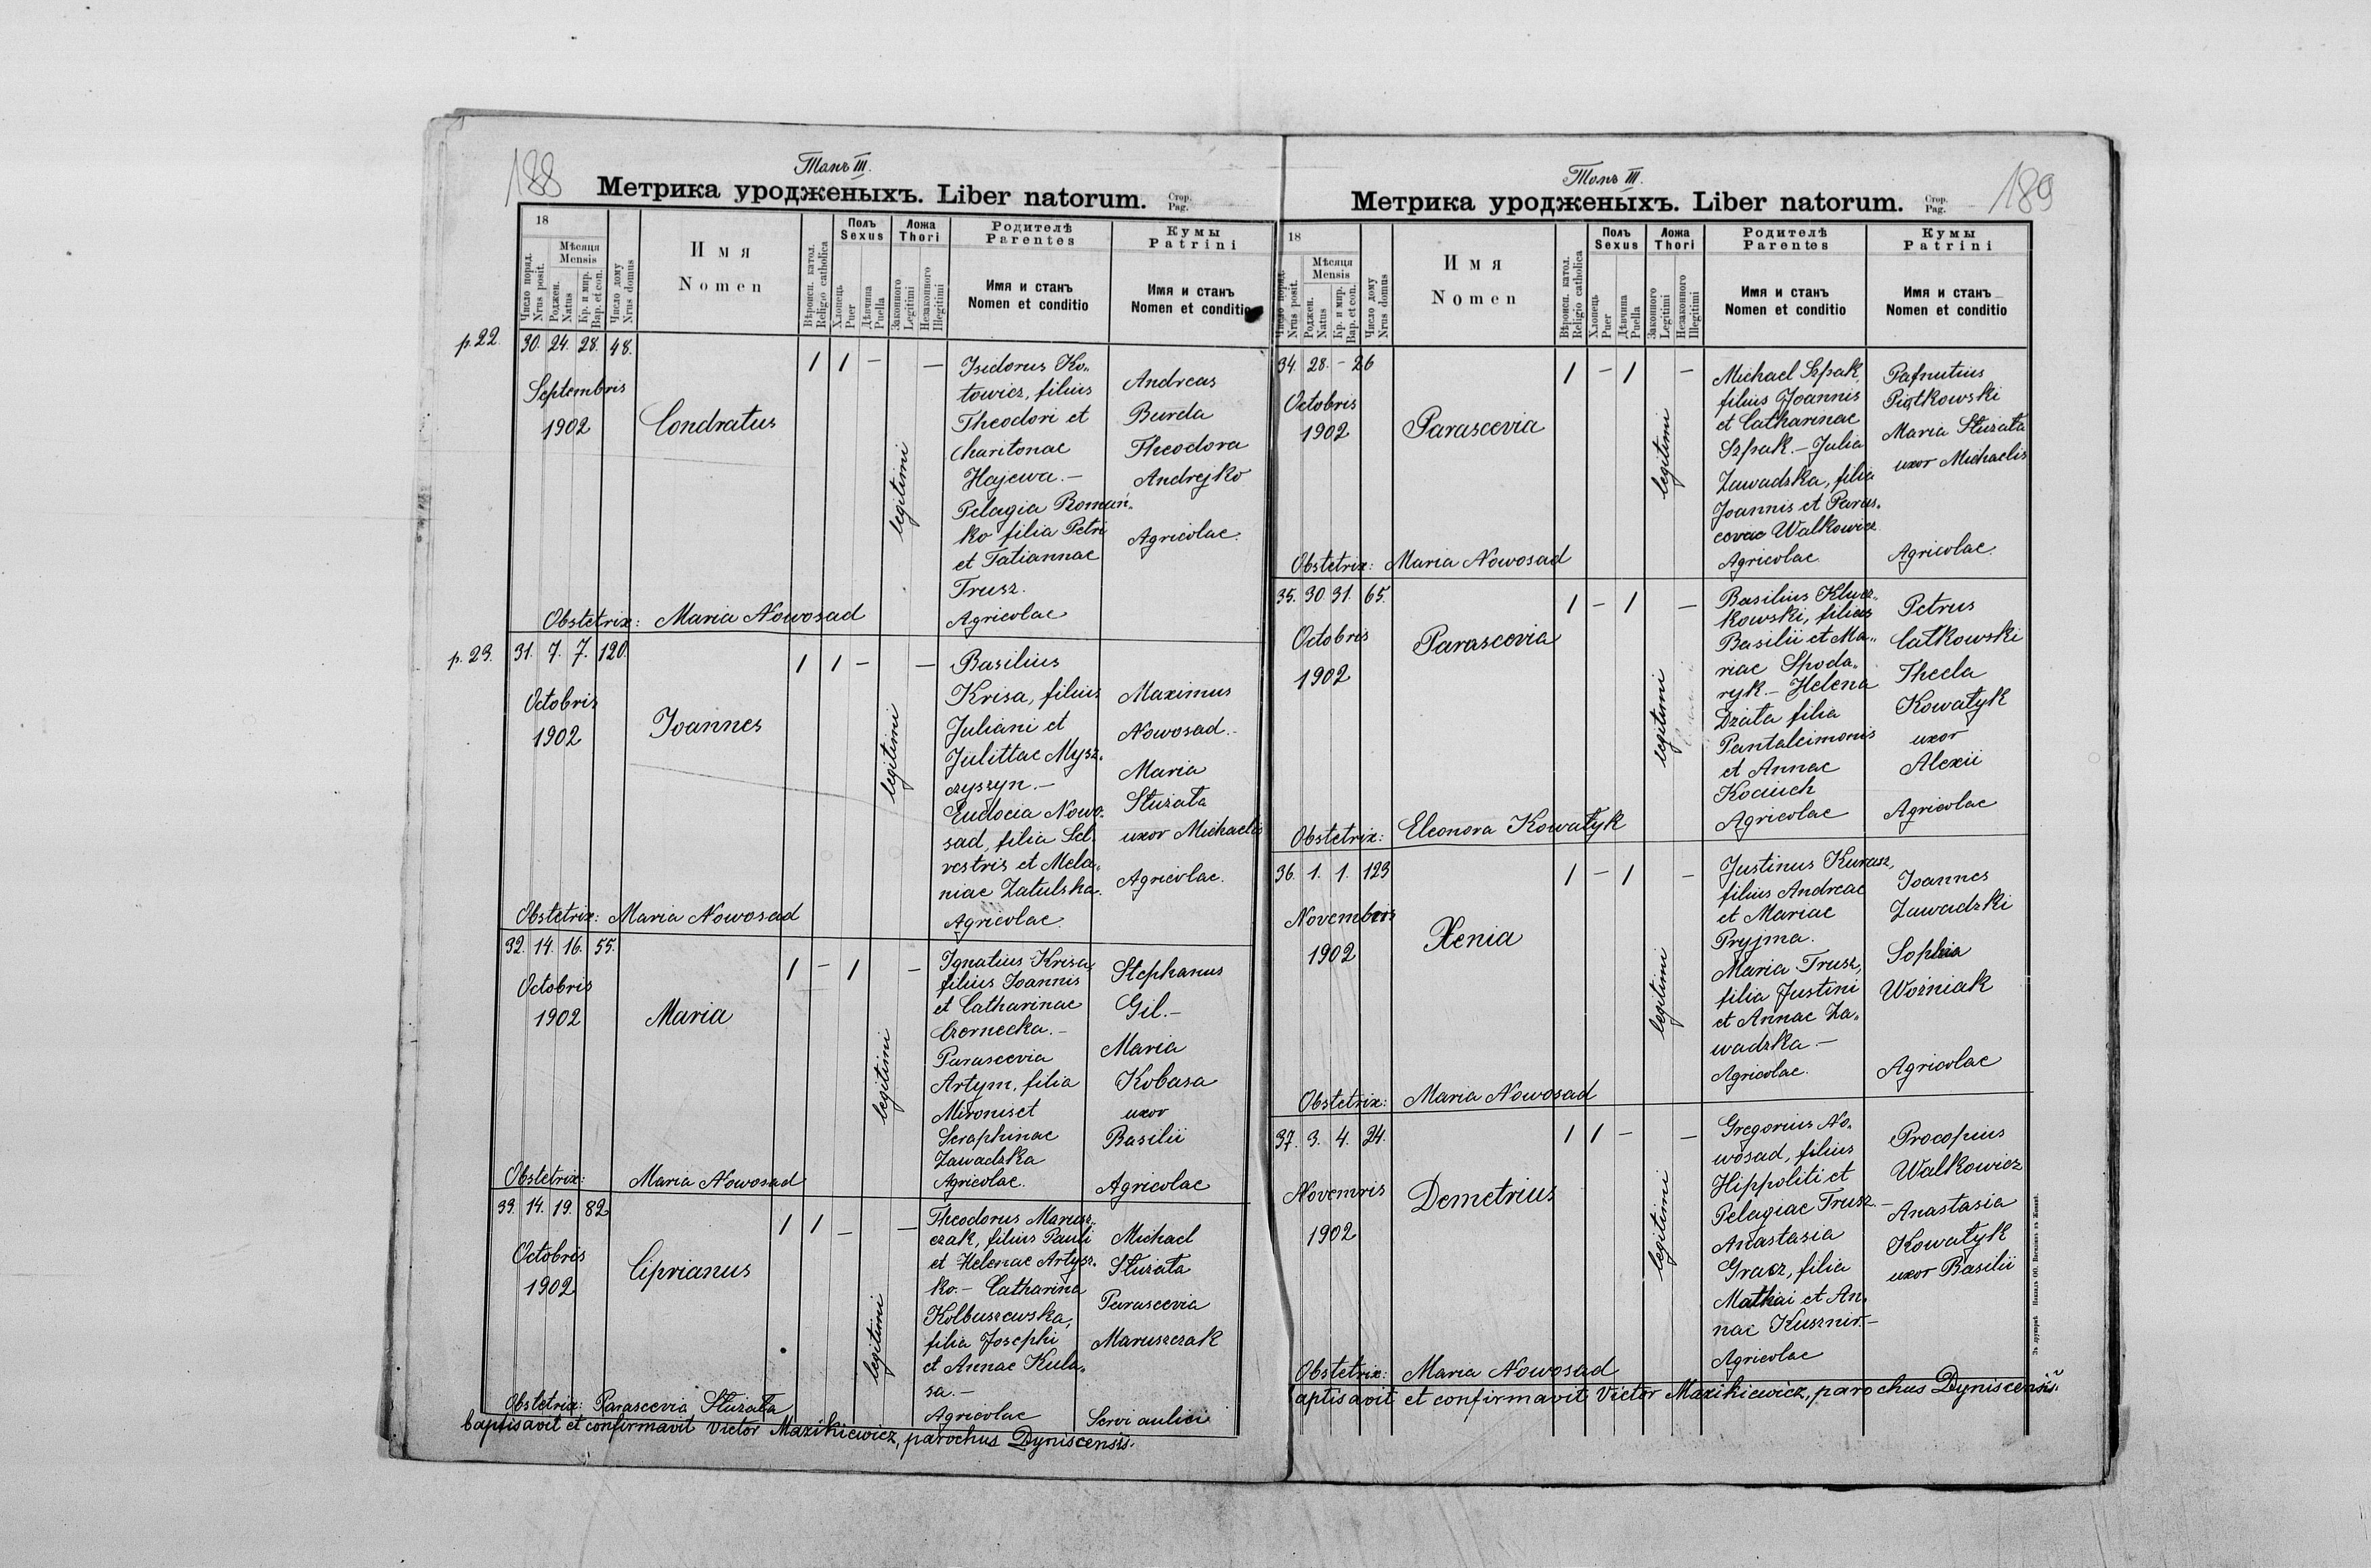 188
Томъ III.
Метрика уродженыхъ. Liber natorum. Стор. Pag.
18
Число поряд. Nrus posit.
Мѣсяця Mensis
Роджен. Natus
Кр. и мир. Bap. et con.
Число дому Nrus domus
Имя
Nomen
Вѣроисп. катол. Religio catholica
Полъ Sexus
Хлопець Puer
Дѣвчина Puella
Ложа Thori
Законного Legitimi
Незаконного Illegitimi
Родителѣ Parentes
Имя и станъ
Nomen et conditio
Кумы Patrini
Имя и станъ
Nomen et conditio
p. 22.
30. 24. 28. 48.
Septembris
1902
Condratus
1 1 – –
legitimi
Isidorus Ko„
towicz, filius
Theodori et
Charitonae
Hajewa. –
Pelagia Roman„
ko filia Petri
et Tatiannae
Trusz.
Agricolae
Andreas
Burda
Theodora
Andrejko
Agricolae.
Obstetrix: Maria Nowosad
p. 23.
31. 7. 7. 120.
Octobris
1902
Joannes
1 1 – –
legitimi
Basilius
Krisa, filius
Juliani et
Julittae Mysz„
czyszyn. –
Eudocia Nowo„
sad, filia Sil„
vestris et Mela„
niae Zatulska.
Agricolae.
Maximus
Nowosad. –
Maria
Sturata
uxor Michaelis
Agricolae.
Obstetrix: Maria Nowosad
32. 14. 16. 55.
Octobris
1902
Maria
1 – 1 –
legitimi
Ignatius Krisa,
filius Joannis
et Catharinae
Czernecka. –
Parascevia
Artym, filia
Mironis et
Seraphinae
Zawadzka
Agricolae.
Stephanus
Gil. –
Maria
Kobasa
uxor
Basilii
Agricolae
Obstetrix: Maria Nowosad
33. 14. 19. 82
Octobris
1902
Ciprianus
1 1 – –
legitimi
Theodorus Marusz„
czak, filius Pauli
et Helenae Artysz„
ko. – Catharina
Kolbuszewska,
filia Josephi
et Annae Kula„
sa. –
Agricolae
Michael
Sturata
Parascevia
Maruszczak
Servi aulici
Obstetrix: Parascevia Sturata
baptisavit et confirmavit Victor Mazikiewicz, parochus Dyniscensis.
189
Томъ III.
Метрика уродженыхъ. Liber natorum. Стор. Pag.
18
Число поряд. Nrus posit.
Мѣсяця Mensis
Роджен. Natus
Кр. и мир. Bap. et con.
Число дому Nrus domus
Имя
Nomen
Вѣроисп. катол. Religio catholica
Полъ Sexus
Хлопець Puer
Дѣвчина Puella
Ложа Thori
Законного Legitimi
Незаконного Illegitimi
Родителѣ Parentes
Имя и станъ
Nomen et conditio
Кумы Patrini
Имя и станъ
Nomen et conditio
34. 28. – 26
Octobris
1902
Parascevia
1 – 1 –
legitimi
Michael Szpak,
filius Joannis
et Catharinae
Szpak. – Julia
Zawadzka, filia
Joannis et Paras„
cevae Walkowicz
Agricolae.
Pafnutius
Piątkowski
Maria Sturata
uxor Michaelis
Agricolae.
Obstetrix: Maria Nowosad
35. 30. 31. 65.
Octobris
1902
Parascevia
1 – 1 –
legitimi
Basilius Klucz„
kowski, filius
Basilii et Ma„
riae Spoda„
ryk. – Helena
Dziata filia
Pantaleimonis
et Annae
Kociuch
Agricolae
Petrus
Catkowski
Thecla
Kowatyk
uxor
Alexii
Agricolae
Obstetrix: Eleonora Kowatyk
36. 1. 1. 123
Novembris
1902
Xenia
1 – 1 –
legitimi
Justinus Kurasz,
filius Andreae
et Mariae
Pryjma.
Maria Trusz,
filia Justini
et Annae Za„
wadzka. –
Agricolae.
Joannes
Zawadzki
Sophia
Woźniak
Agricolae
Obstetrix: Maria Nowosad
37. 3. 4. 24.
Novemris
1902
Demetrius
1 1 – –
legitimi
Gregorius No„
wosad, filius
Hippoliti et
Pelagiae Trusz. –
Anastasia
Gracz, filia
Mathai et An„
nae Kusznir. –
Agricolae
Procopius
Walkowicz
Anastasia
Kowatyk
uxor Basilii
Obstetrix: Maria Nowosad
baptisavit et confirmavit Victor Mazikiewicz, parochus Dyniscensis.